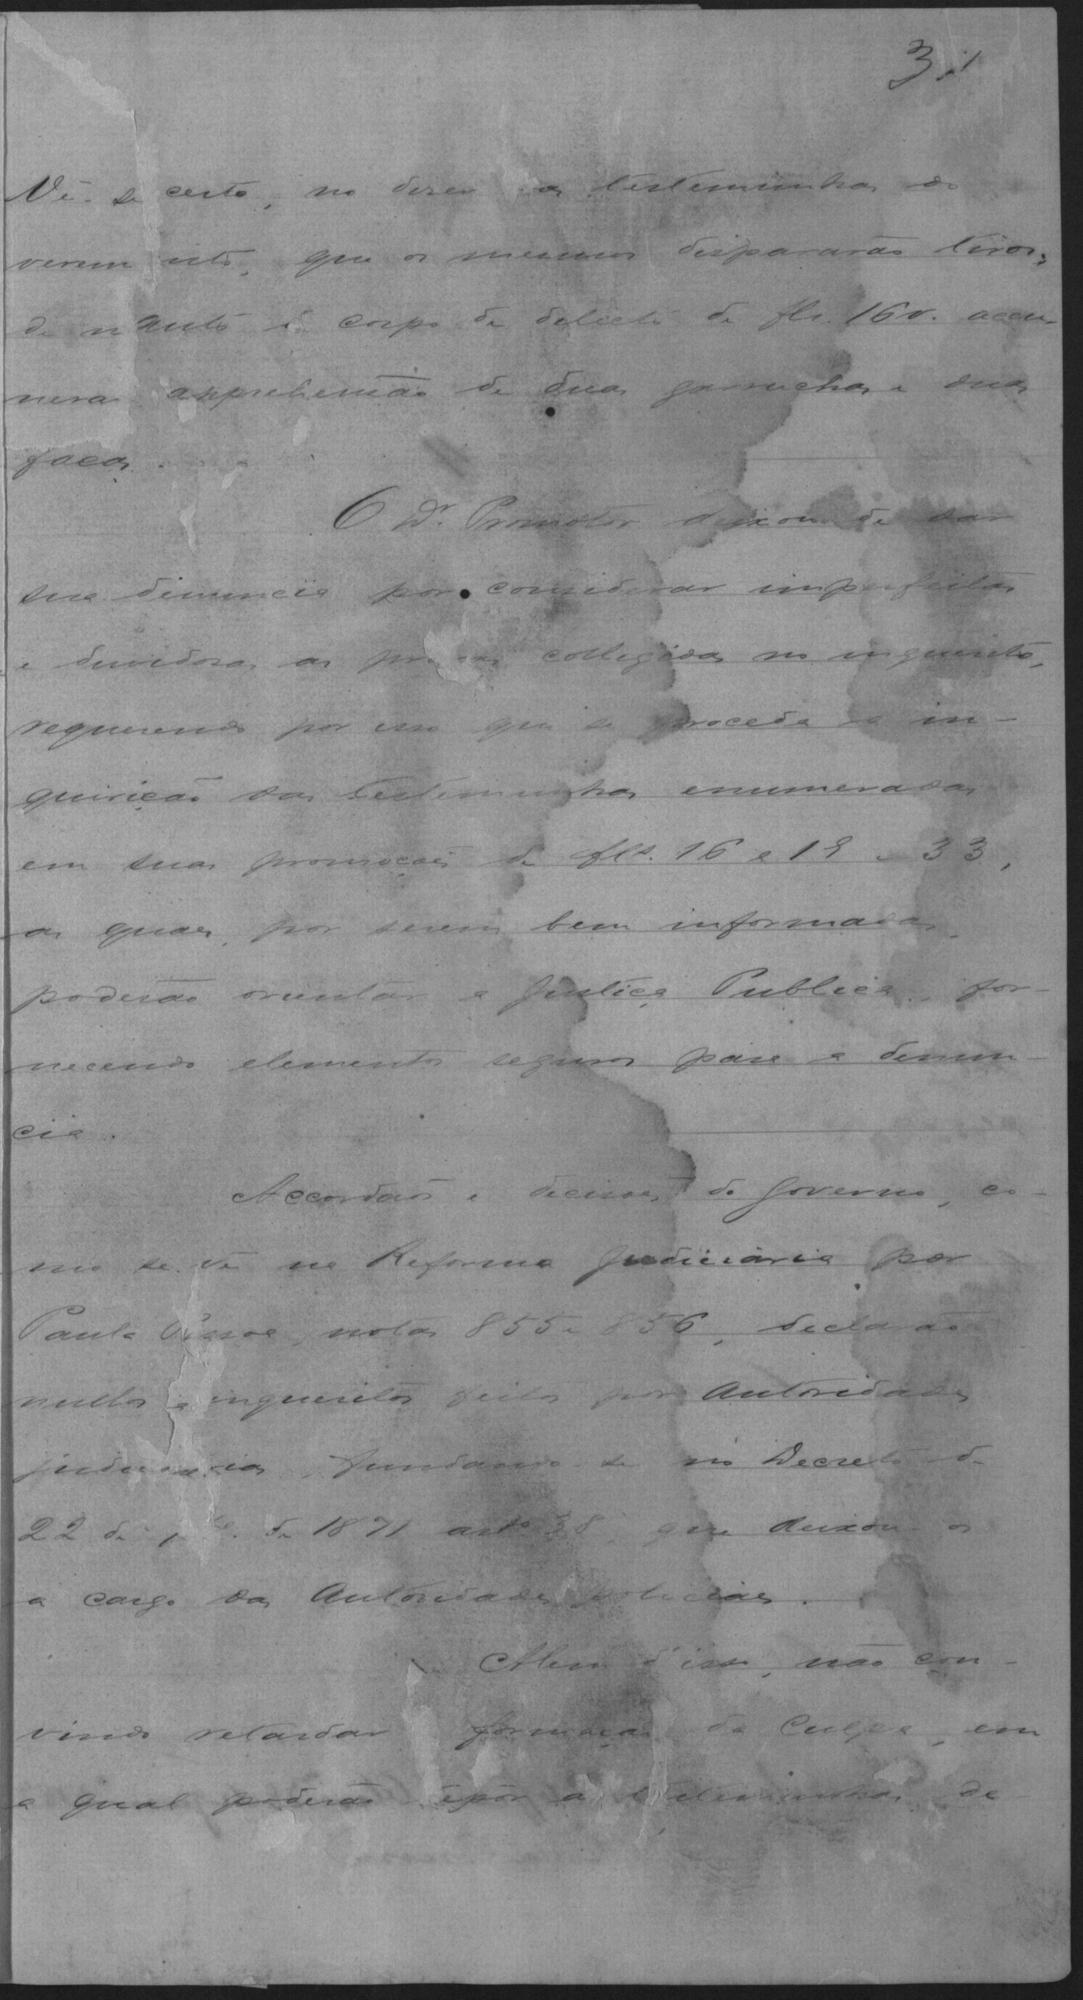 31
Vê-se certo, no dizer as testemunhas do
verem isto, que os mesmos dispararão tiros,
de auto de corpo de delicto de fls. 16v.
apprehensão de duas garruchas e duas
facas.
O Dr. Promotor deixou de dar
sua denuncia por considerar imperfeitas
e duvidosas as provas colligidas no inquerito,
requerendo por isso que se proceda a in-
quirição das testemunhas enumeradas
em suas promoções de fls. 16 e 19 e 33,
as quaes, por serem bem informadas,
poderão orientar a Justiça Publica, for-
necendo elementos seguros para a denun-
cia.
Accordãos e decisões do Governo, co-
mo se vê na Reforma Judiciaria por
Paula Pessoa, notas 855 e 856, declarão
nullos inqueritos feitos por Autoridades
judiciarias, fundando-se no Decreto de
22 de de 1871 arto 38, que deixou os
a cargo das Autoridades policiaes.
Alem d'isso, não con-
vindo retardar formação da Culpa, em
a qual poderão depôr as testemunhas de